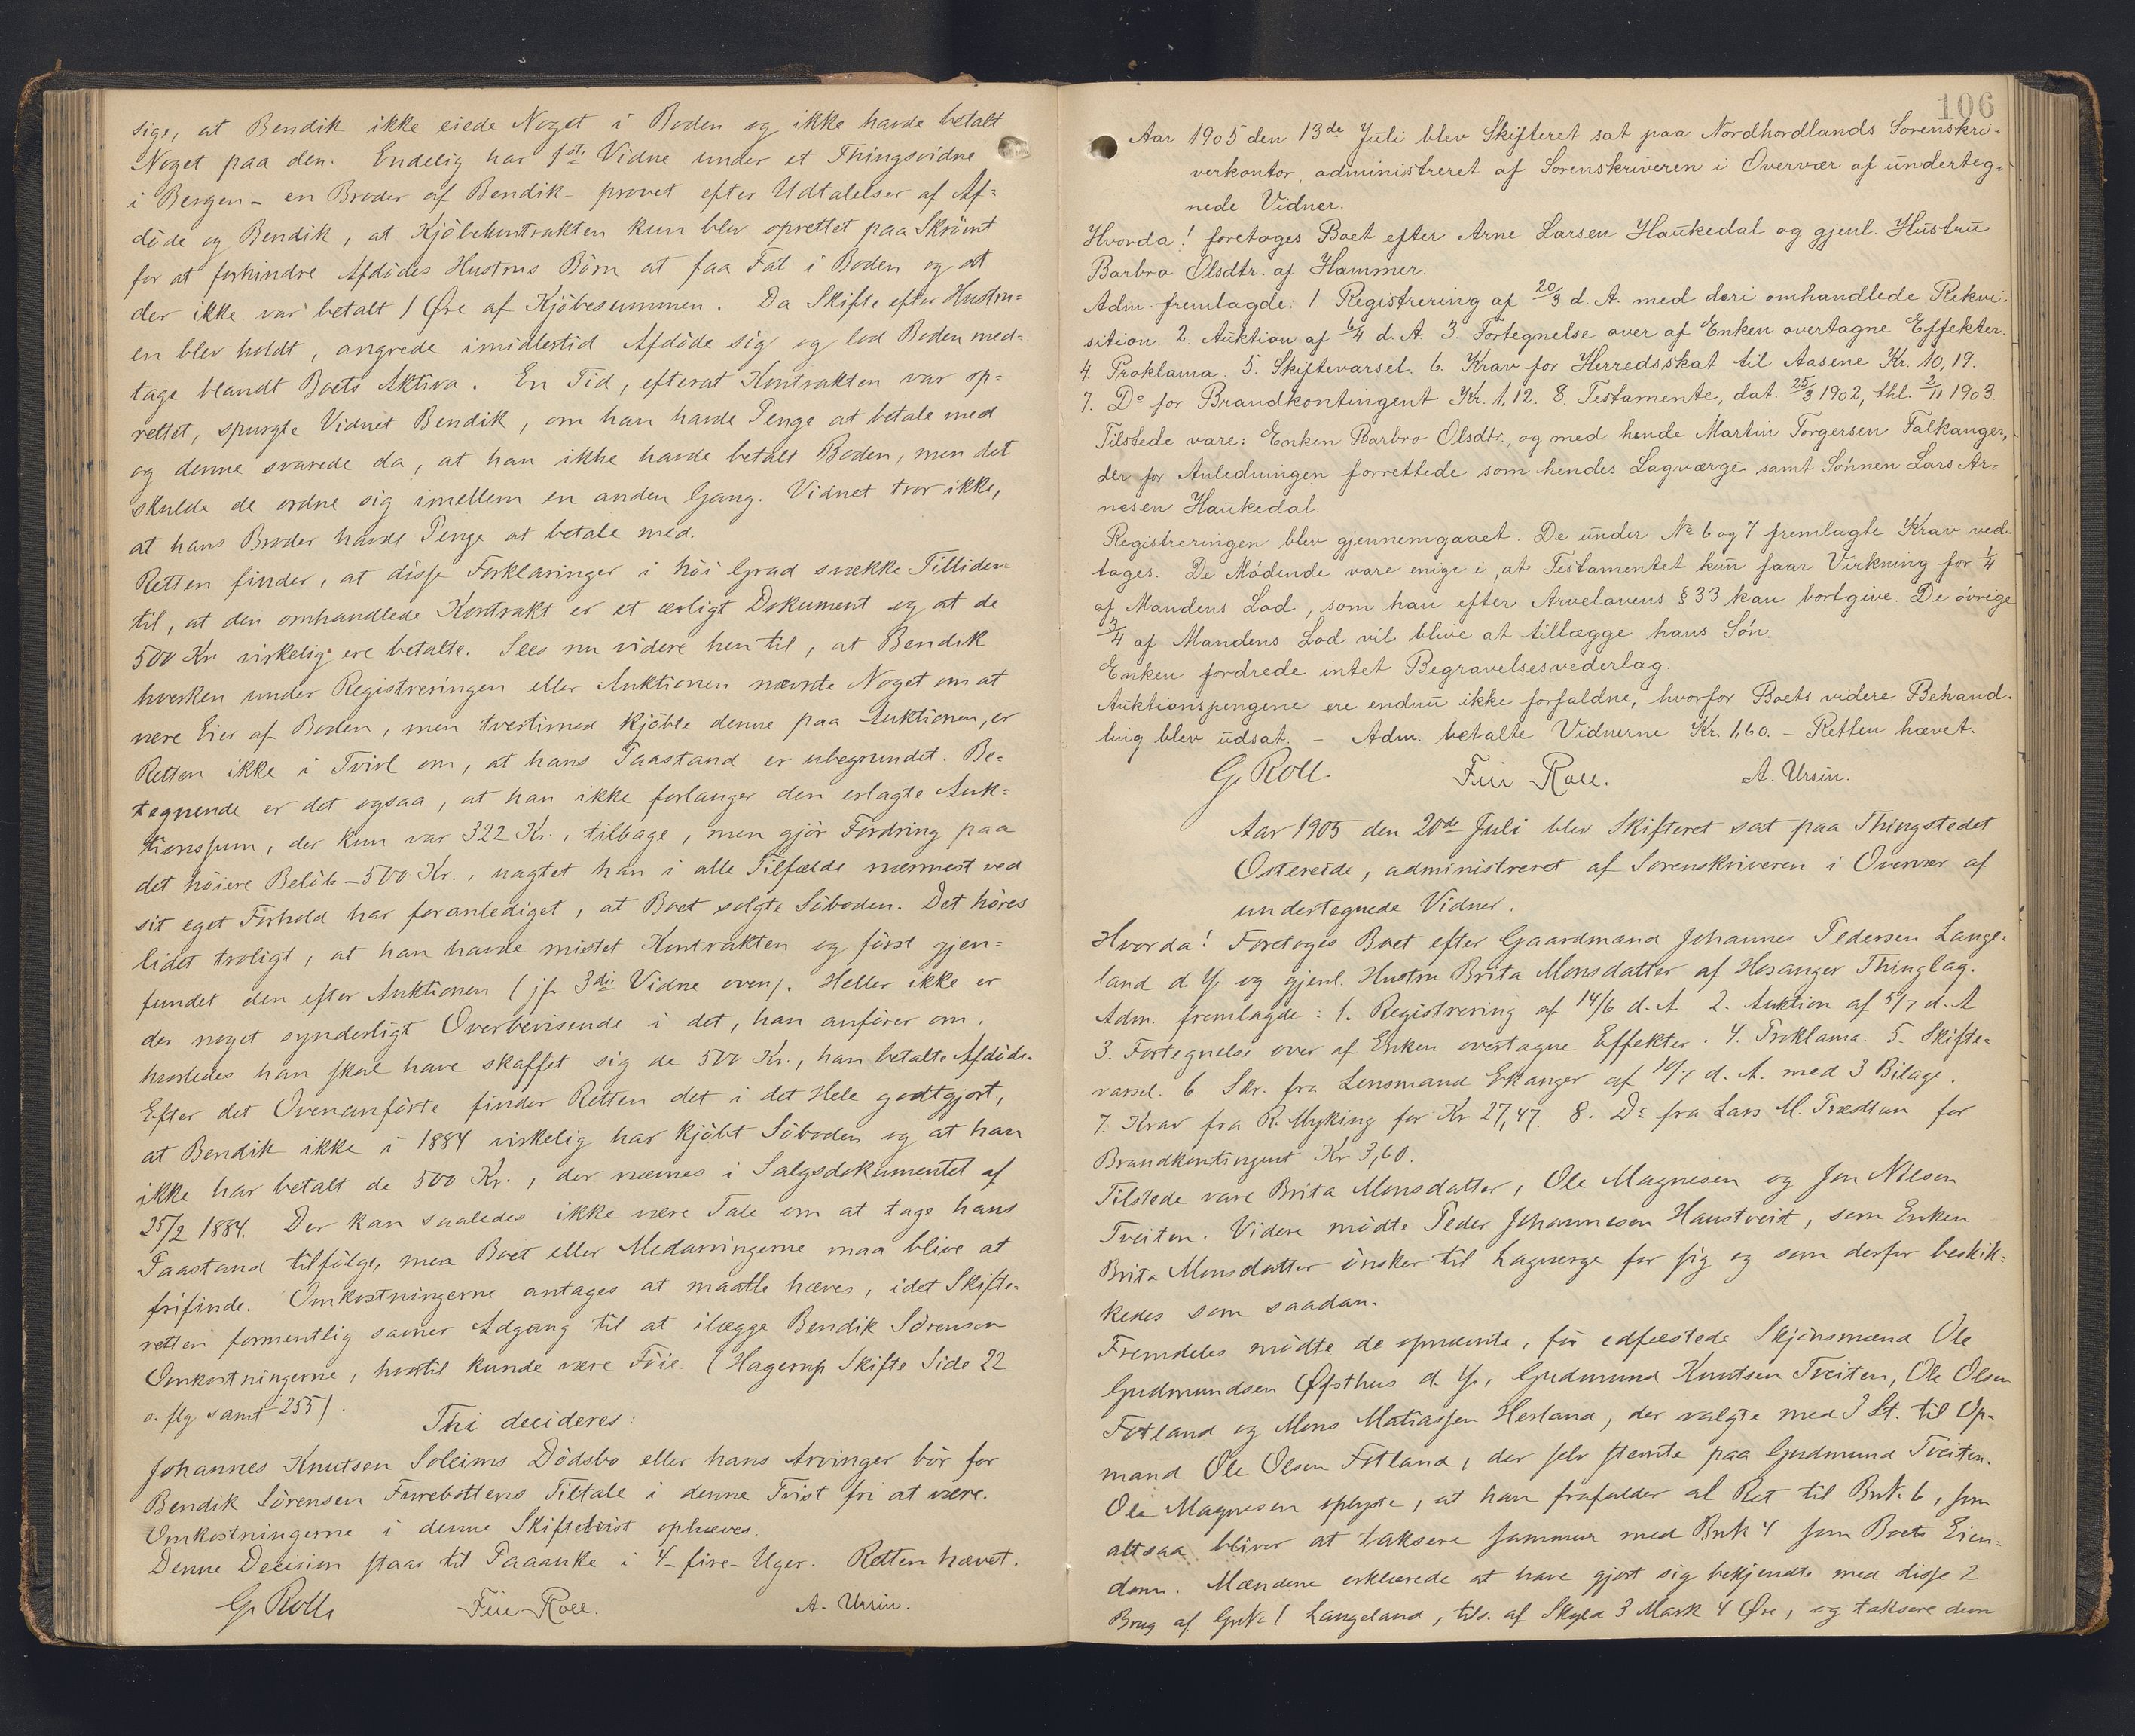 sige, at Bendik ikke eiede Noget i Boden og ikke havde betalt
Noget paa den. Endelig har 1ste Vidne under et Thingsvidne
i Bergen – en Broder af Bendik – provet efter Udtalelser af Af=
døde og Bendik, at Kjøbekontrakten kun blev oprettet paa Skrømt
for at forhindre Afdødes Hustrus Børn at faa Fat i Boden og at
der ikke var betalt 1 Øre af Kjøbesummen. Da Skifte efter Hustru=
en blev holdt, angrede imidlertid Afdøde sig og lod Boden med=
tage blandt Boets Aktiva. En Tid, efterat Kontrakten var op=
rettet, spurgte Vidnet Bendik, om han havde Penge at betale med
og denne svarede da, at han ikke havde betalt Boden, men det
skulde de ordne sig imellem en anden Gang. Vidnet tror ikke,
at hans Broder havde Penge at betale med.
Retten finder, at disse Forklaringer i høi Grad svække Tilliden
til, at den omhandlede Kontrakt er et ærligt Dokument og at de
500 Kr virkelig ere betalte. Sees nu videre hen til, at Bendik
hverken under Registreringen eller Auktionen nævnte Noget om at
være Eier af Boden, men tvertimod kjøbte denne paa Auktionen, er
Retten ikke i Tvivl om, at hans Paastand er ubegrundet. Be=
tegnende er det ogsaa, at han ikke forlanger den erlagte Auk=
tionssum, der kun var 322 Kr., tilbage, men gjør Fordring paa
det høiere Beløb – 500 Kr., uagtet han i alle Tilfælde nærmest ved
sit eget Forhold har foranlediget, at Boet solgte Søboden. Det høres
lidet troligt, at han havde mistet Kontrakten og først gjen=
fundet den efter Auktionen (jfr 3die Vidne oven). Heller ikke er
der noget synderligt Overbevisende i det, han anfører om,
hvorledes han skal have skaffet sig de 500 Kr., han betalte Afdøde.
Efter det Ovenanførte finder Retten det i det Hele godtgjort,
at Bendik ikke i 1884 virkelig har kjøbt Søboden og at han
ikke har betalt de 500 Kr., der nævnes i Salgsdokumentet af
25/2 1884. Der kan saaledes ikke være Tale om at tage hans
Paastand tilfølge, men Boet eller Medarvingerne maa blive at
frifinde. Omkostningerne antages at maatte hæves, idet Skifte=
retten formentlig savner Adgang til at ilægge Bendik Sørensen
Omkostningerne, hvortil kunde være Føie. (Hagerup Skifte Side 22
o. flg samt 255).
Thi decideres:
Johannes Knutsen Soleims Dødsbo eller hans Arvinger bør for
Bendik Sørensen Furebottens Tiltale i denne Tvist fri at være.
Omkostningerne i denne Skiftetvist ophæves.
Denne Decision staar til Paaanke i 4 – fire – Uger. Retten hævet.
G. Roll Finn Roll. A. Ursin.
106
Aar 1905 den 13de Juli blev Skifteret sat paa Nordhordlands Sorenskri=
verkontor, administreret af Sorenskriveren i Overvær af underteg=
nede Vidner.
Hvorda! foretoges Boet efter Arne Larsen Haukedal og gjenl. Hustru
Barbro Olsdtr. af Hammer.
Adm. fremlagde: 1. Registrering af 20/3 d. A. med deri omhandlede Rekvi=
sition. 2. Auktion af 6/4 d. A. 3. Fortegnelse over af Enken overtagne Effekter.
4. Proklama. 5. Skiftevarsel. 6. Krav for Herredsskat til Aasene Kr. 10,19.
7. Do for Brandkontingent Kr. 1,12. 8. Testamente, dat. 25/3 1902, thl. 2/11 1903.
Tilstede vare: Enken Barbro Olsdtr., og med hende Martin Torgersen Falkanger,
der for Anledningen forrettede som hendes Lagværge samt Sønnen Lars Ar=
nesen Haukedal.
Registreringen blev gjennemgaaet. De under No 6 og 7 fremlagte Krav ved=
tages. De Mødende vare enige i, at Testamentet kun faar Virkning for 1/4
af Mandens Lod, som han efter Arvelovens § 33 kan bortgive. De øvrige
3/4 af Mandens Lod vil blive at tillægge hans Søn.
Enken fordrede intet Begravelsesvederlag.
Auktionspengene ere endnu ikke forfaldne, hvorfor Boets videre Behand=
ling blev udsat. – Adm. betalte Vidnerne Kr. 1,60. – Retten hævet.
G. Roll. Finn Roll. A. Ursin.
Aar 1905 den 20de Juli blev Skifteret sat paa Thingstedet
Ostereide, administreret af Sorenskriveren i Overvær af
undertegnede Vidner.
Hvorda! Foretoges Boet efter Gaardmand Johannes Pedersen Lange=
land d. Y. og gjenl. Hustru Brita Monsdatter af Hosanger Thinglag.
Adm. fremlagde: 1. Registrering af 14/6 d. A 2. Auktion af 5/7 d. A
3. Fortegnelse over af Enken overtagne Effekter. 4. Proklama. 5. Skifte=
varsel. 6 Skr. fra Lensmand Eikanger af 10/7 d. A. med 3 Bilage.
7. Krav fra R. Myking for Kr 27,47. 8. Do fra Lars M. Trætten for
Brandkontingent Kr 3,60.
Tilstede vare Brita Monsdatter, Ole Magnesen og Jon Nilsen
Tveiten. Videre mødte Peder Johannesen Haustveit, som Enken
Brita Monsdatter ønsker til Lagværge for sig og som derfor beskik=
kedes som saadan.
Fremdeles mødte de opnævnte, før edfæstede Skjønsmænd Ole
Gudmundsen Øfsthus d. Y., Gudmund Knutsen Tveiten, Ole Olsen
Fotland og Mons Matiassen Herland, der valgte med 3 St. til Op=
mand Ole Olsen Fotland, der selv stemte paa Gudmund Tveiten.
Ole Magnesen oplyste, at han frafalder al Ret til Bnk. 6, som
altsaa bliver at taksere sammen med Bnk 4 som Boets Eien=
dom. Mændene erklærede at have gjort sig bekjendte med disse 2
Brug af Gnk 1 Langeland, tils. af Skyld 3 Mark 4 Øre, og taksere dem